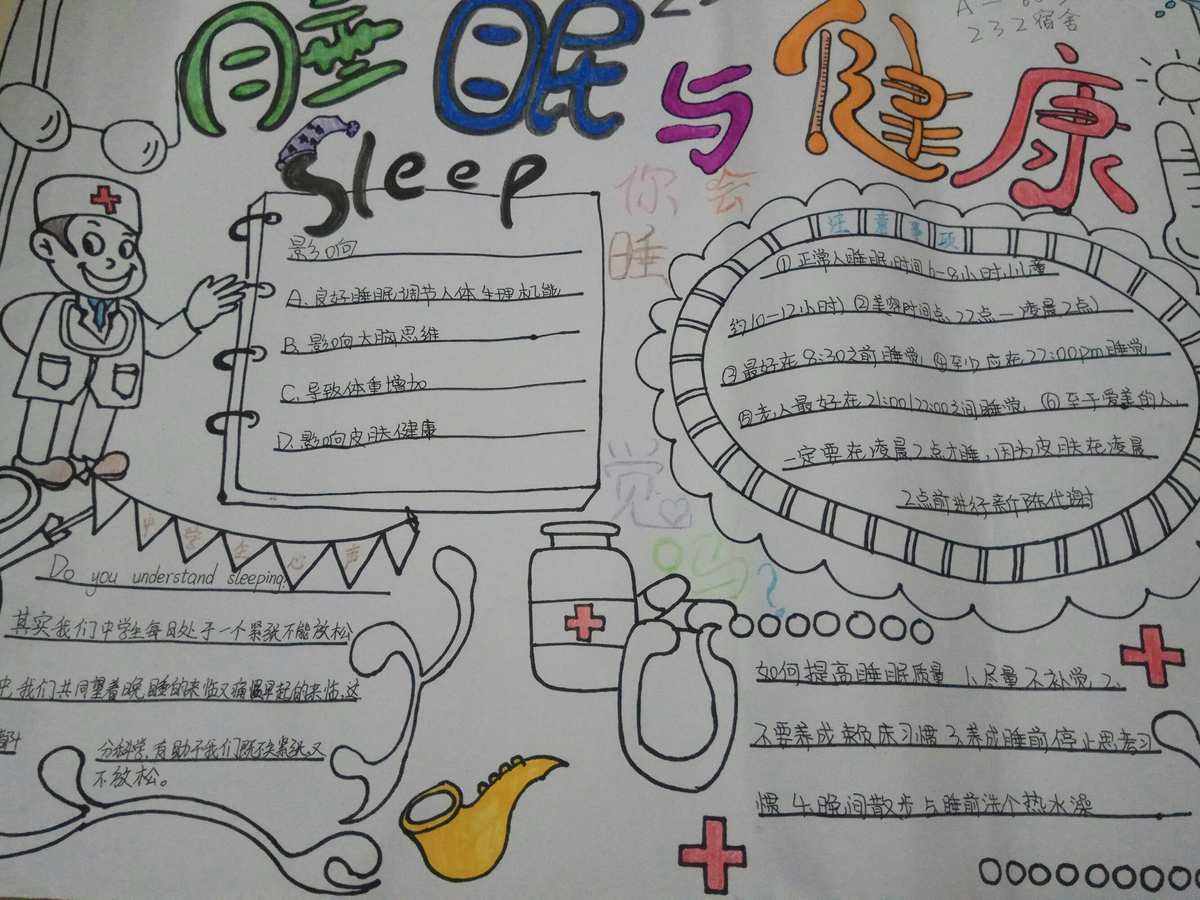 睡眠与健康
232宿舍
Sleep
你会
睡
觉
吗?
影响
A.良好睡眠调节人体生理机能
B.影响大脑思维
C.导致体重增加
D.影响皮肤健康
注意事项
①正常人睡眠时间6-8小时(儿童
约10-12小时)②美容时间点:22点—凌晨2点)
③最好在9:30之前睡觉 ④至少应在22:00pm睡觉
⑤老人最好在21:00-22:00之间睡觉 ⑥至于爱美的人,
一定要在凌晨2点才睡,因为皮肤在凌晨
2点前进行新陈代谢
中学生心声
Do you understand sleeping?
其实我们中学生每日处于一个紧张不能放松
中,我们共同望着晚睡的来临又痛恨早起的来临.这
分科学,有助于我们既不紧张又
不放松。
如何提高睡眠质量 1.尽量不补觉 2.
不要养成赖床习惯 3.养成睡前停止思考习
惯 4.晚间散步与睡前洗个热水澡